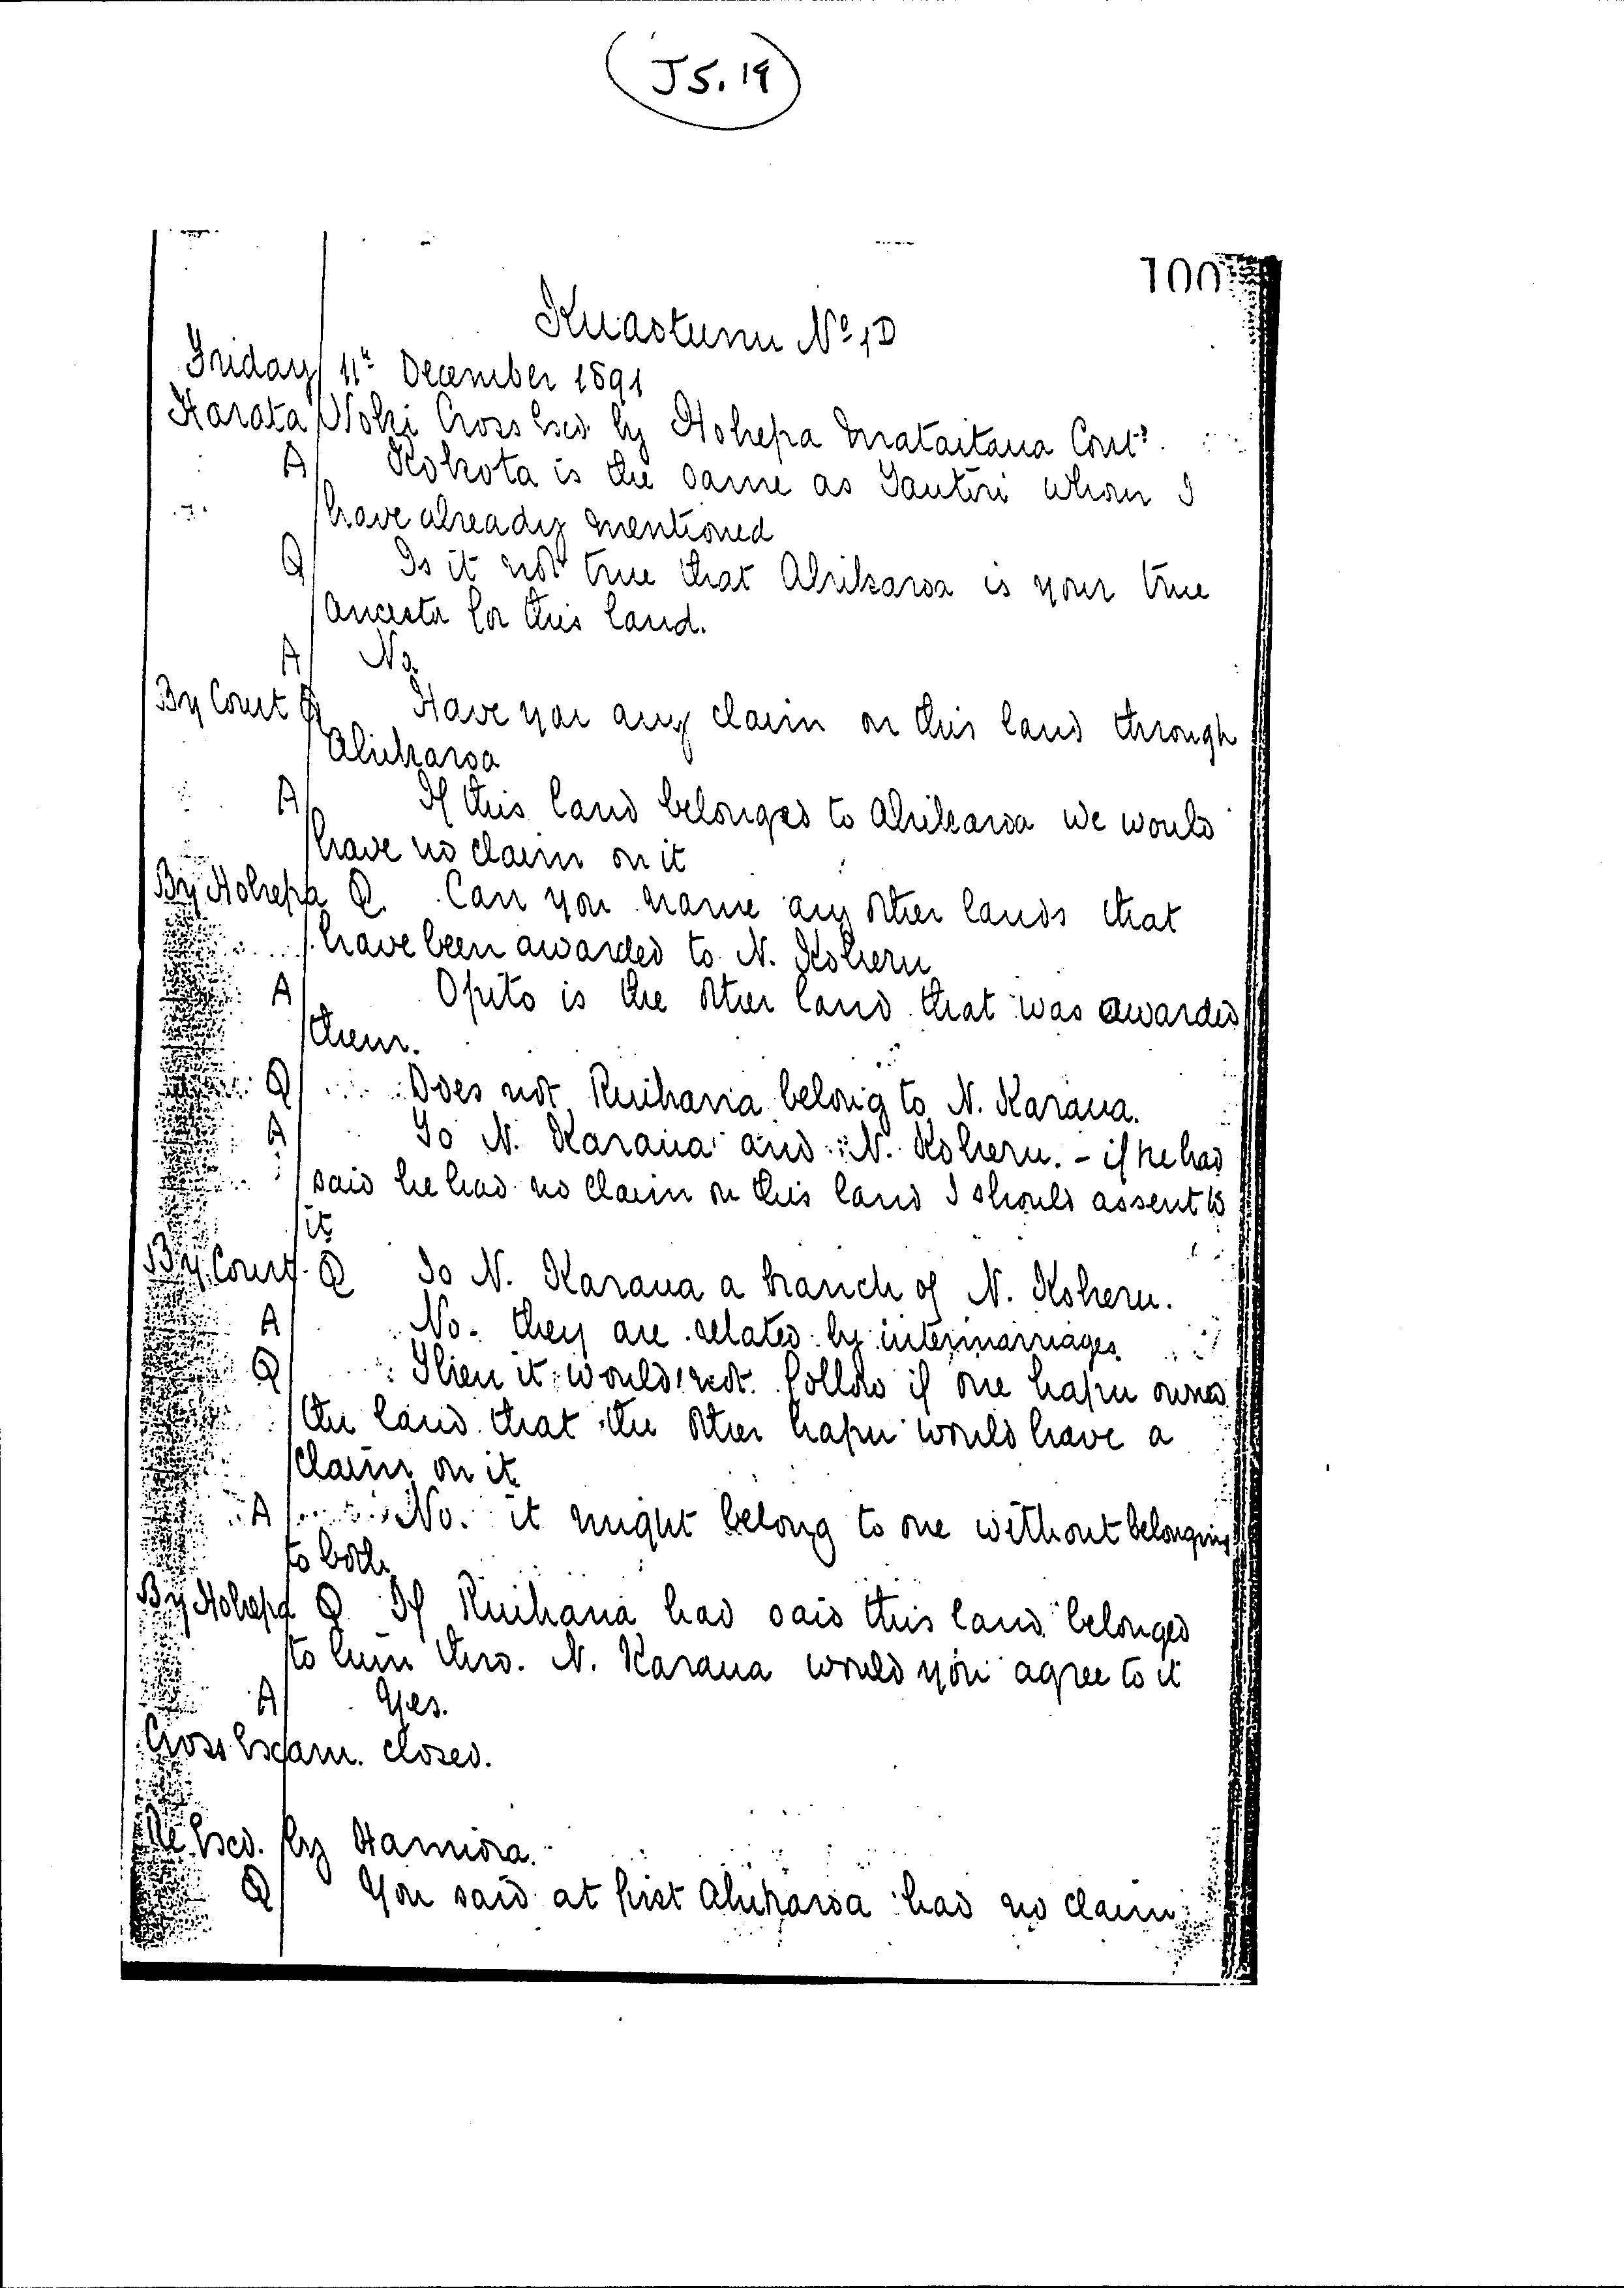 J5.19
100
Kuaotunu No 1D
Friday 11th December 1891
Harata Noki Cross Exd. by Hohepa Mataitaua Contd.
A Kokota is the same as Tautiri whom I
have already mentioned
Q Is it not true that Ahikaroa is your true
ancestor for this land.
A No.
By Court Q Have you any claim on this land through
Ahikaroa
A If this land belonged to Ahikaroa we would
have no claim on it
By Hohepa Q. Can you name any other lands that
have been awarded to N. Koheru
A Opito is the other land that was awarded
them.
Q Does not Ruihana belong to N. Karaua.
A To N. Karaua and N. Koheru. - if he had
said he had no claim on this land I should assent to
it
By Court Q Is N. Karaua a branch of N. Koheru.
A No. they are related by intermarriages
Q Then it would not follow if one hapu owned
the land that the other hapu would have a
claim on it
A No. it might belong to one without belonging
to both
By Hohepa Q If Ruihana had said this land belonged
to him thro. N. Karaua would you agree to it
A Yes.
Cross Exam. closed.
Re Exd. by Hamiora.
Q You said at first Ahikaroa had no claim